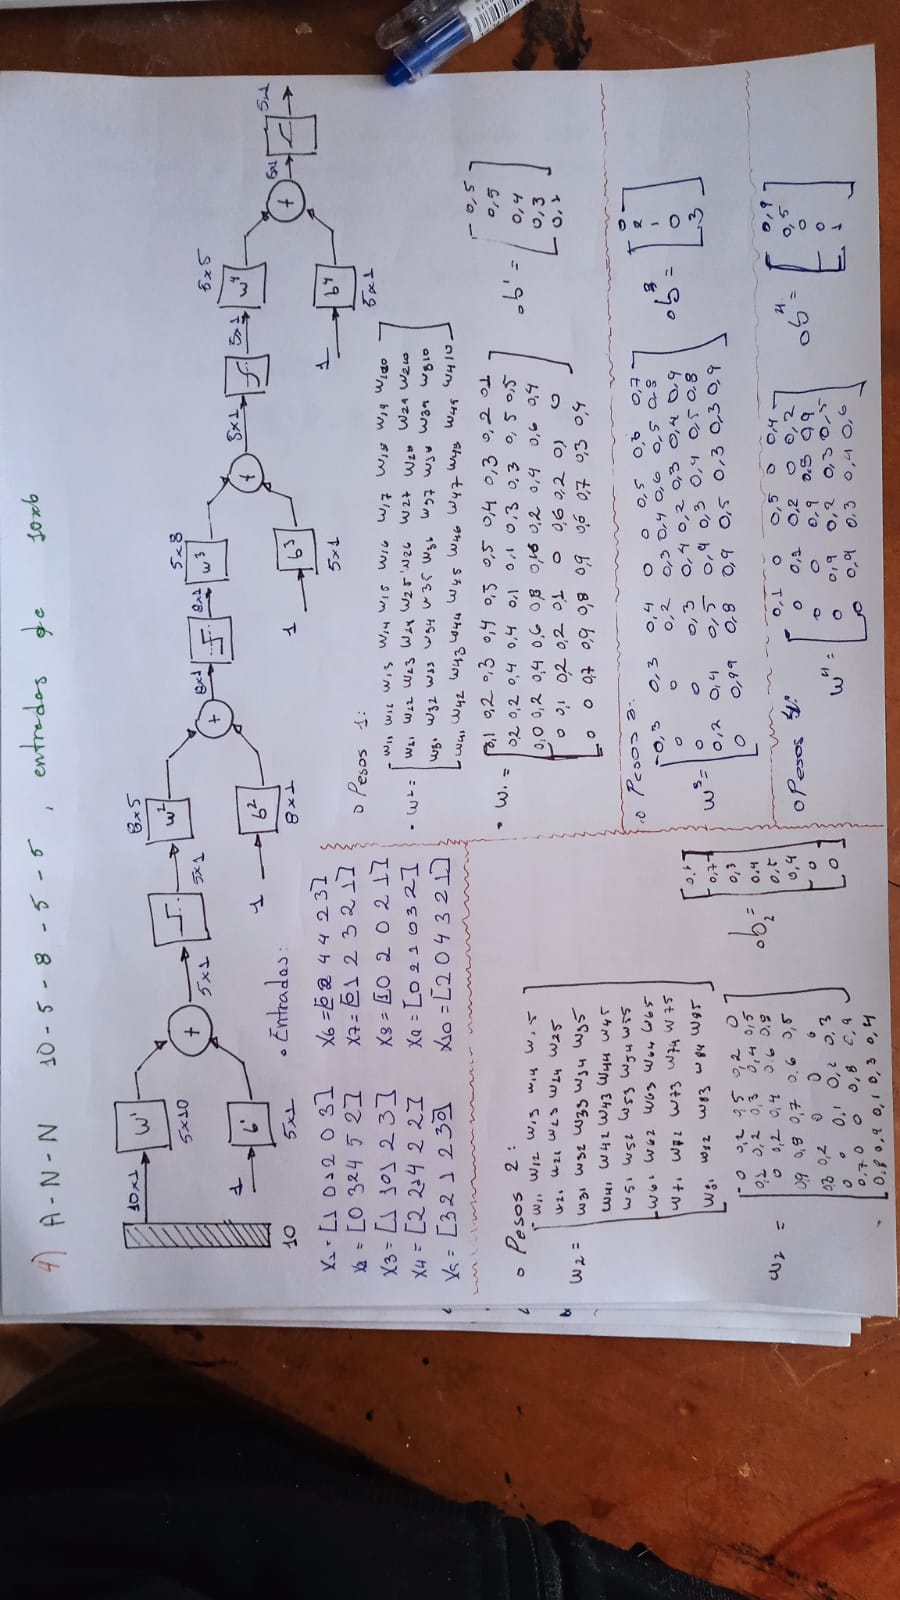 4) A-N-N 10-5-8-5-5, entradas de 10x6
10x1
w¹
5x10
1
b¹
5x1
10
+
5x1
5x1
8x5
w²
1
b²
8x1
+
8x1
8x1
5x8
w³
1
b³
5x1
+
5x1
5x1
5x5
w⁴
1
b⁴
5x1
+
5x1
5x1
• Entradas:
X1 = [1 0 1 2 0 3]
X2 = [0 3 2 4 5 2]
X3 = [1 1 0 1 2 3]
X4 = [2 2 1 4 2 2]
X5 = [3 2 1 2 3 0]
X6 = [2 4 4 2 3]
X7 = [1 2 3 2 1]
X8 = [1 0 2 0 2 1]
X9 = [0 2 1 0 3 2]
X10 = [2 0 4 3 2 1]
o Pesos 1:
w11 w12 w13 w14 w15 w16 w17 w18 w19
w21 w22 w23 w24 w25 w26 w27 w28 w29 w210
w31 w32 w33 w34 w35 w36 w37 w38 w39 w310
w41 w42 w43 w44 w45 w46 w47 w48 w49 w410
0,1 0,2 0,3 0,4 0,5 0,5 0,4 0,3 0,2 0,1
0,2 0,2 0,4 0,4 0,1 0,1 0,3 0,3 0,5 0,5
0,0 0,2 0,4 0,6 0,8 0,2 0,4 0,6 0,4
0 0,1 0,2 0,2 0,1 0 0,6 0,2 0,1 0
0 0 0,7 0,9 0,8 0,9 0,6 0,7 0,3 0,4
o b¹ =
0,5
0,5
0,4
0,3
o Pesos 2:
w2 =
w11 w12 w13 w14 w15
w21 w22 w23 w24 w25
w31 w32 w33 w34 w35
w41 w42 w43 w44 w45
w51 w52 w53 w54 w55
w61 w62 w63 w64 w65
w71 w72 w73 w74 w75
w81 w82 w83 w84 w85
w2 =
0 0,2 0,5 0,2 0
0,1 0,2 0,3 0,4 0,5
0 0,2 0,4 0,6 0,8
0,9 0,8 0,7 0,6 0,5
0,3 0,2 0 0 0
0 0 0,1 0,2 0,3
0,7 0 0 0,8
0,8 0,9 0,1 0,3 0,4
o b2 =
0,7
0,3
0,4
0,5
0,4
0
0
o Pesos 3:
w³ =
0,3 0,3 0,4 0 0 0,5 0,6 0,7
0 0 0,2 0,3 0,4 0,6 0,5 0,8
0 0 0,3 0,4 0,2 0,3 0,4 0,9
0,2 0,4 0,5 0,4 0,3 0,4 0,5 0,8
0 0,8 0,9 0,5 0,3 0,3 0,9
o b³ =
0
2
1
0
3
o Pesos 4:
w⁴ =
0,1 0 0,5 0 0,4
0 0,1 0,2 0 0,2
0 0 0,9 0,3 0,9
0 0,9 0,2 0,3 0,5
0 0,9 0,3 0,4 0,6
o b⁴ =
0,9
0,5
0
0
1